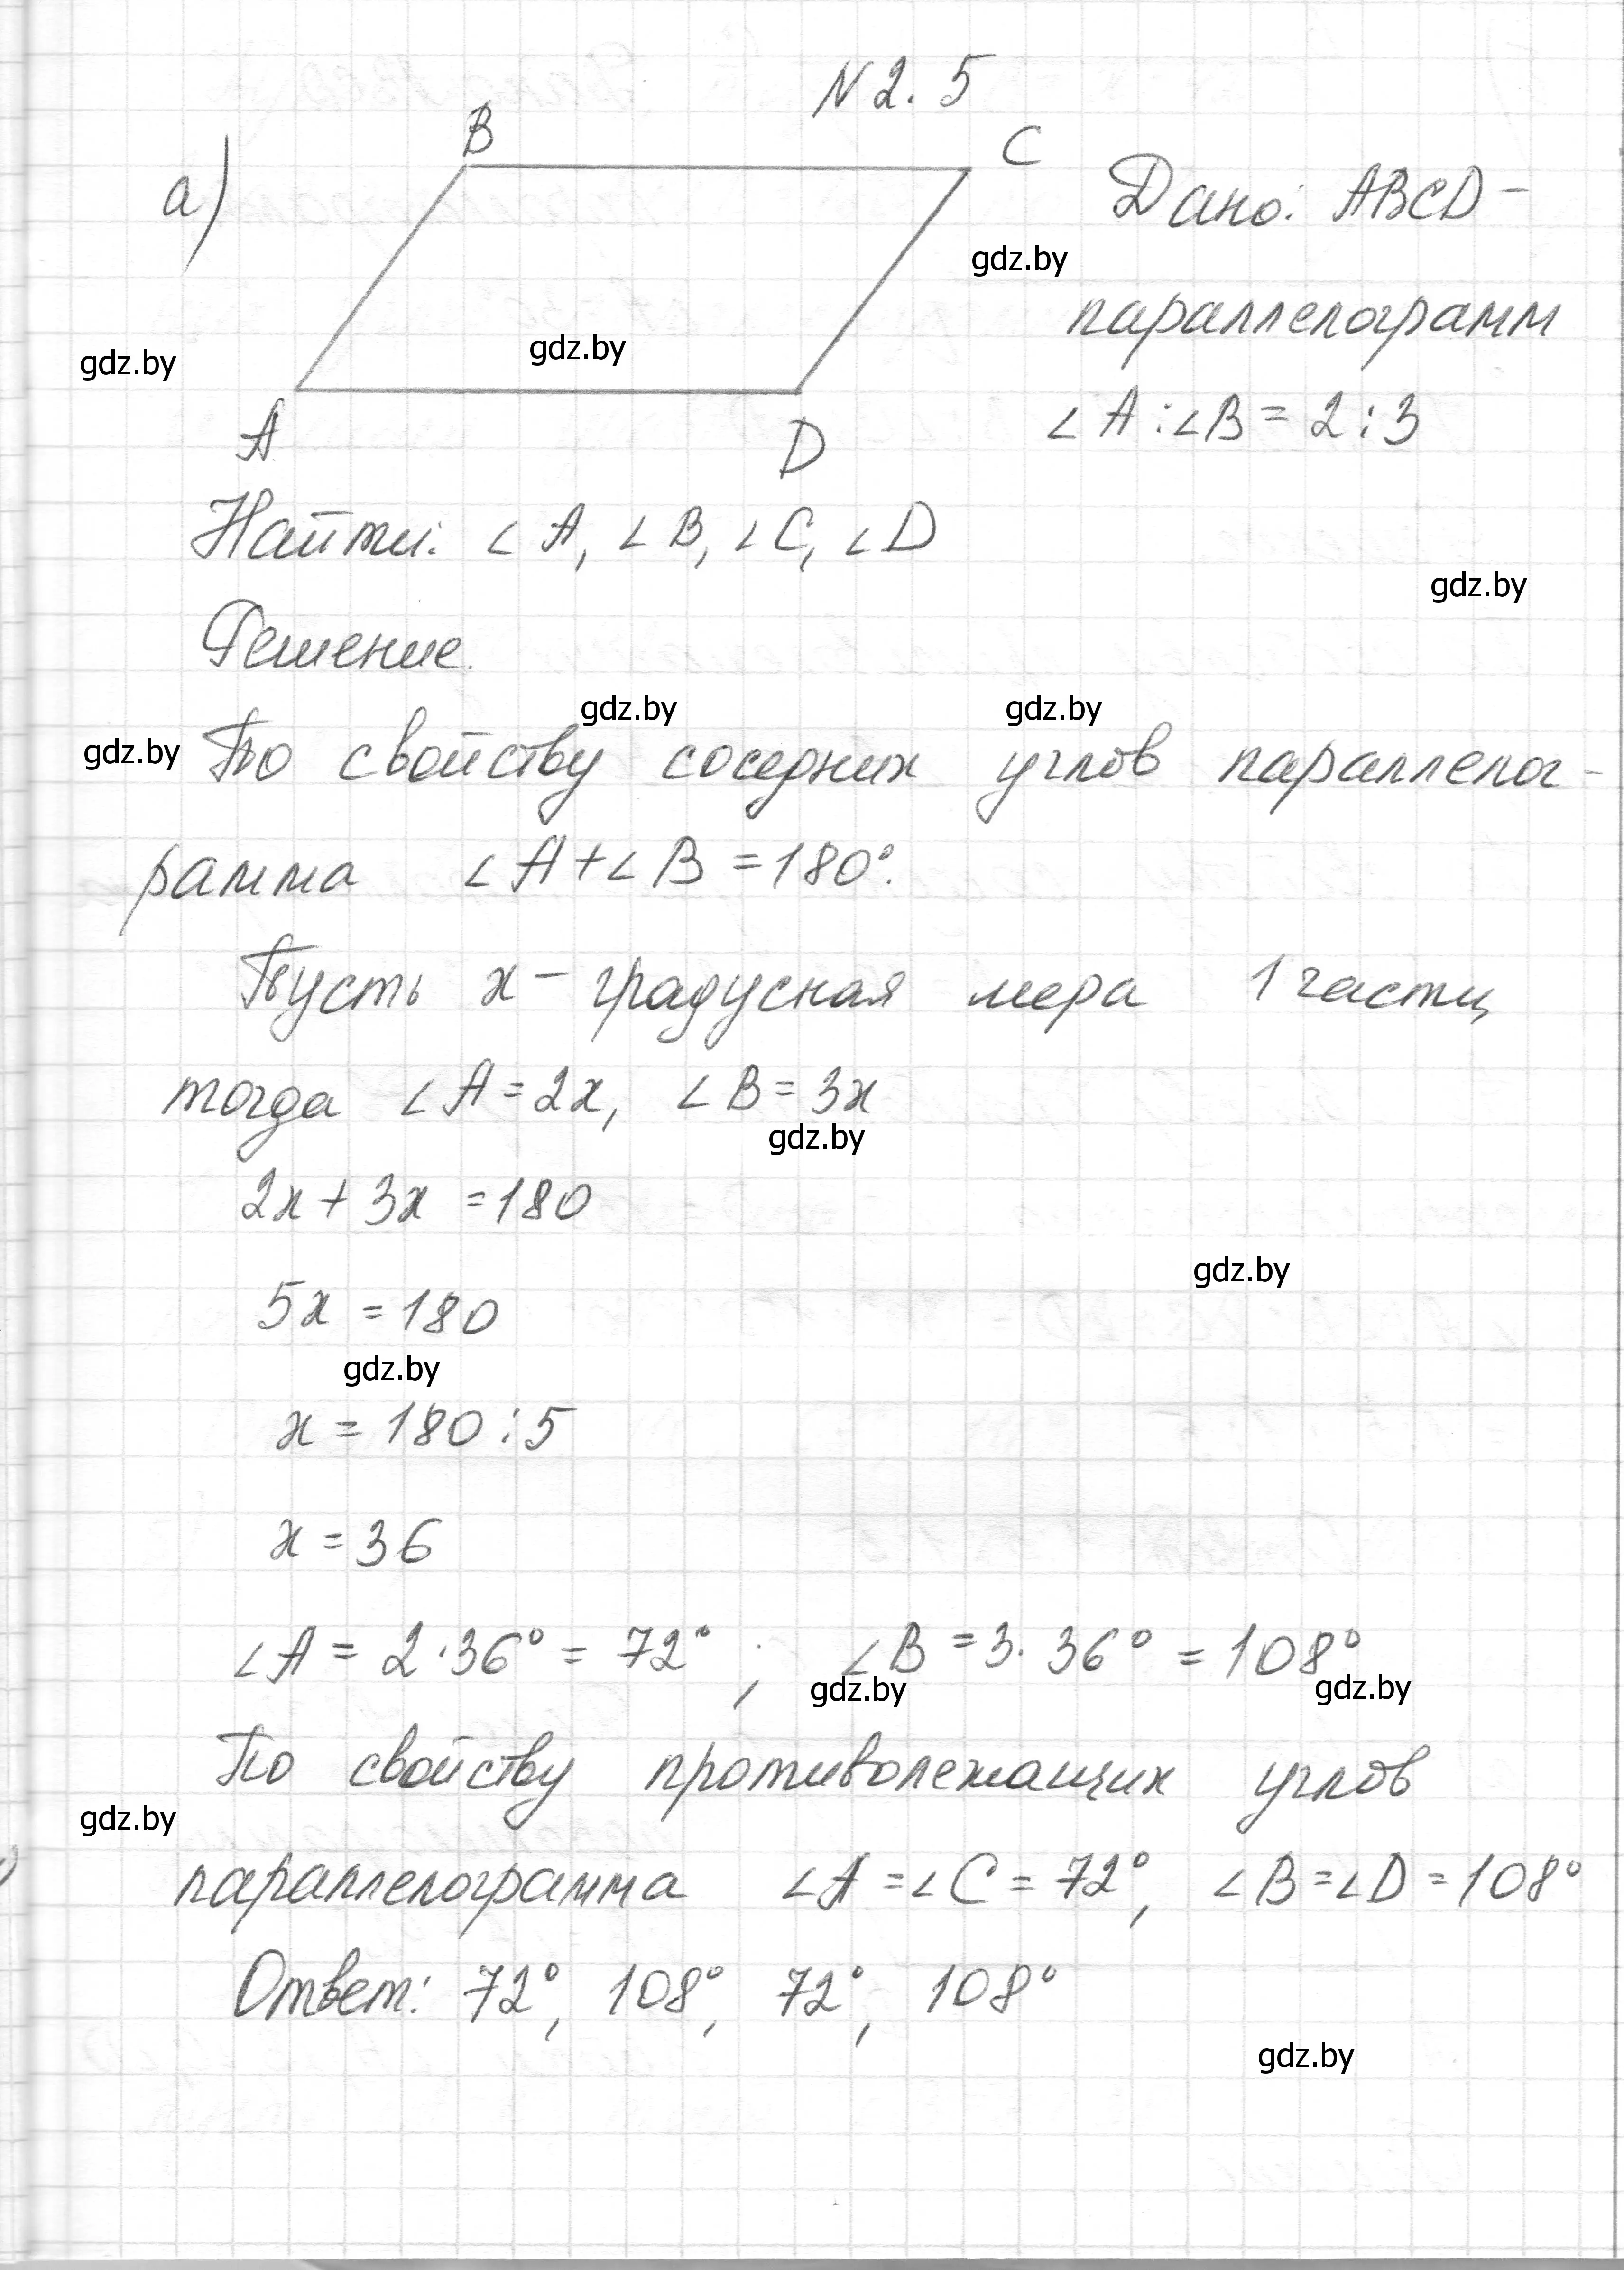 N 2. 5
а)
B
C
Дано: ABCD –
gdz.by
параллелограмм
gdz.by
gdz.by
∠A : ∠B = 2 : 3
A
D
Найти: ∠A, ∠B, ∠C, ∠D
gdz.by
Решение.
gdz.by
gdz.by
gdz.by
По свойству соседних углов параллелог-
рамма ∠A + ∠B = 180°.
Пусть x – градусная мера 1 части,
тогда ∠A = 2x, ∠B = 3x
gdz.by
2x + 3x = 180
gdz.by
5x = 180
gdz.by
x = 180 : 5
x = 36
∠A = 2 · 36° = 72° ; ∠B = 3 · 36° = 108°
gdz.by
gdz.by
По свойству противолежащих углов
gdz.by
параллелограмма ∠A = ∠C = 72°, ∠B = ∠D = 108°
Ответ: 72°, 108°, 72°, 108°
gdz.by